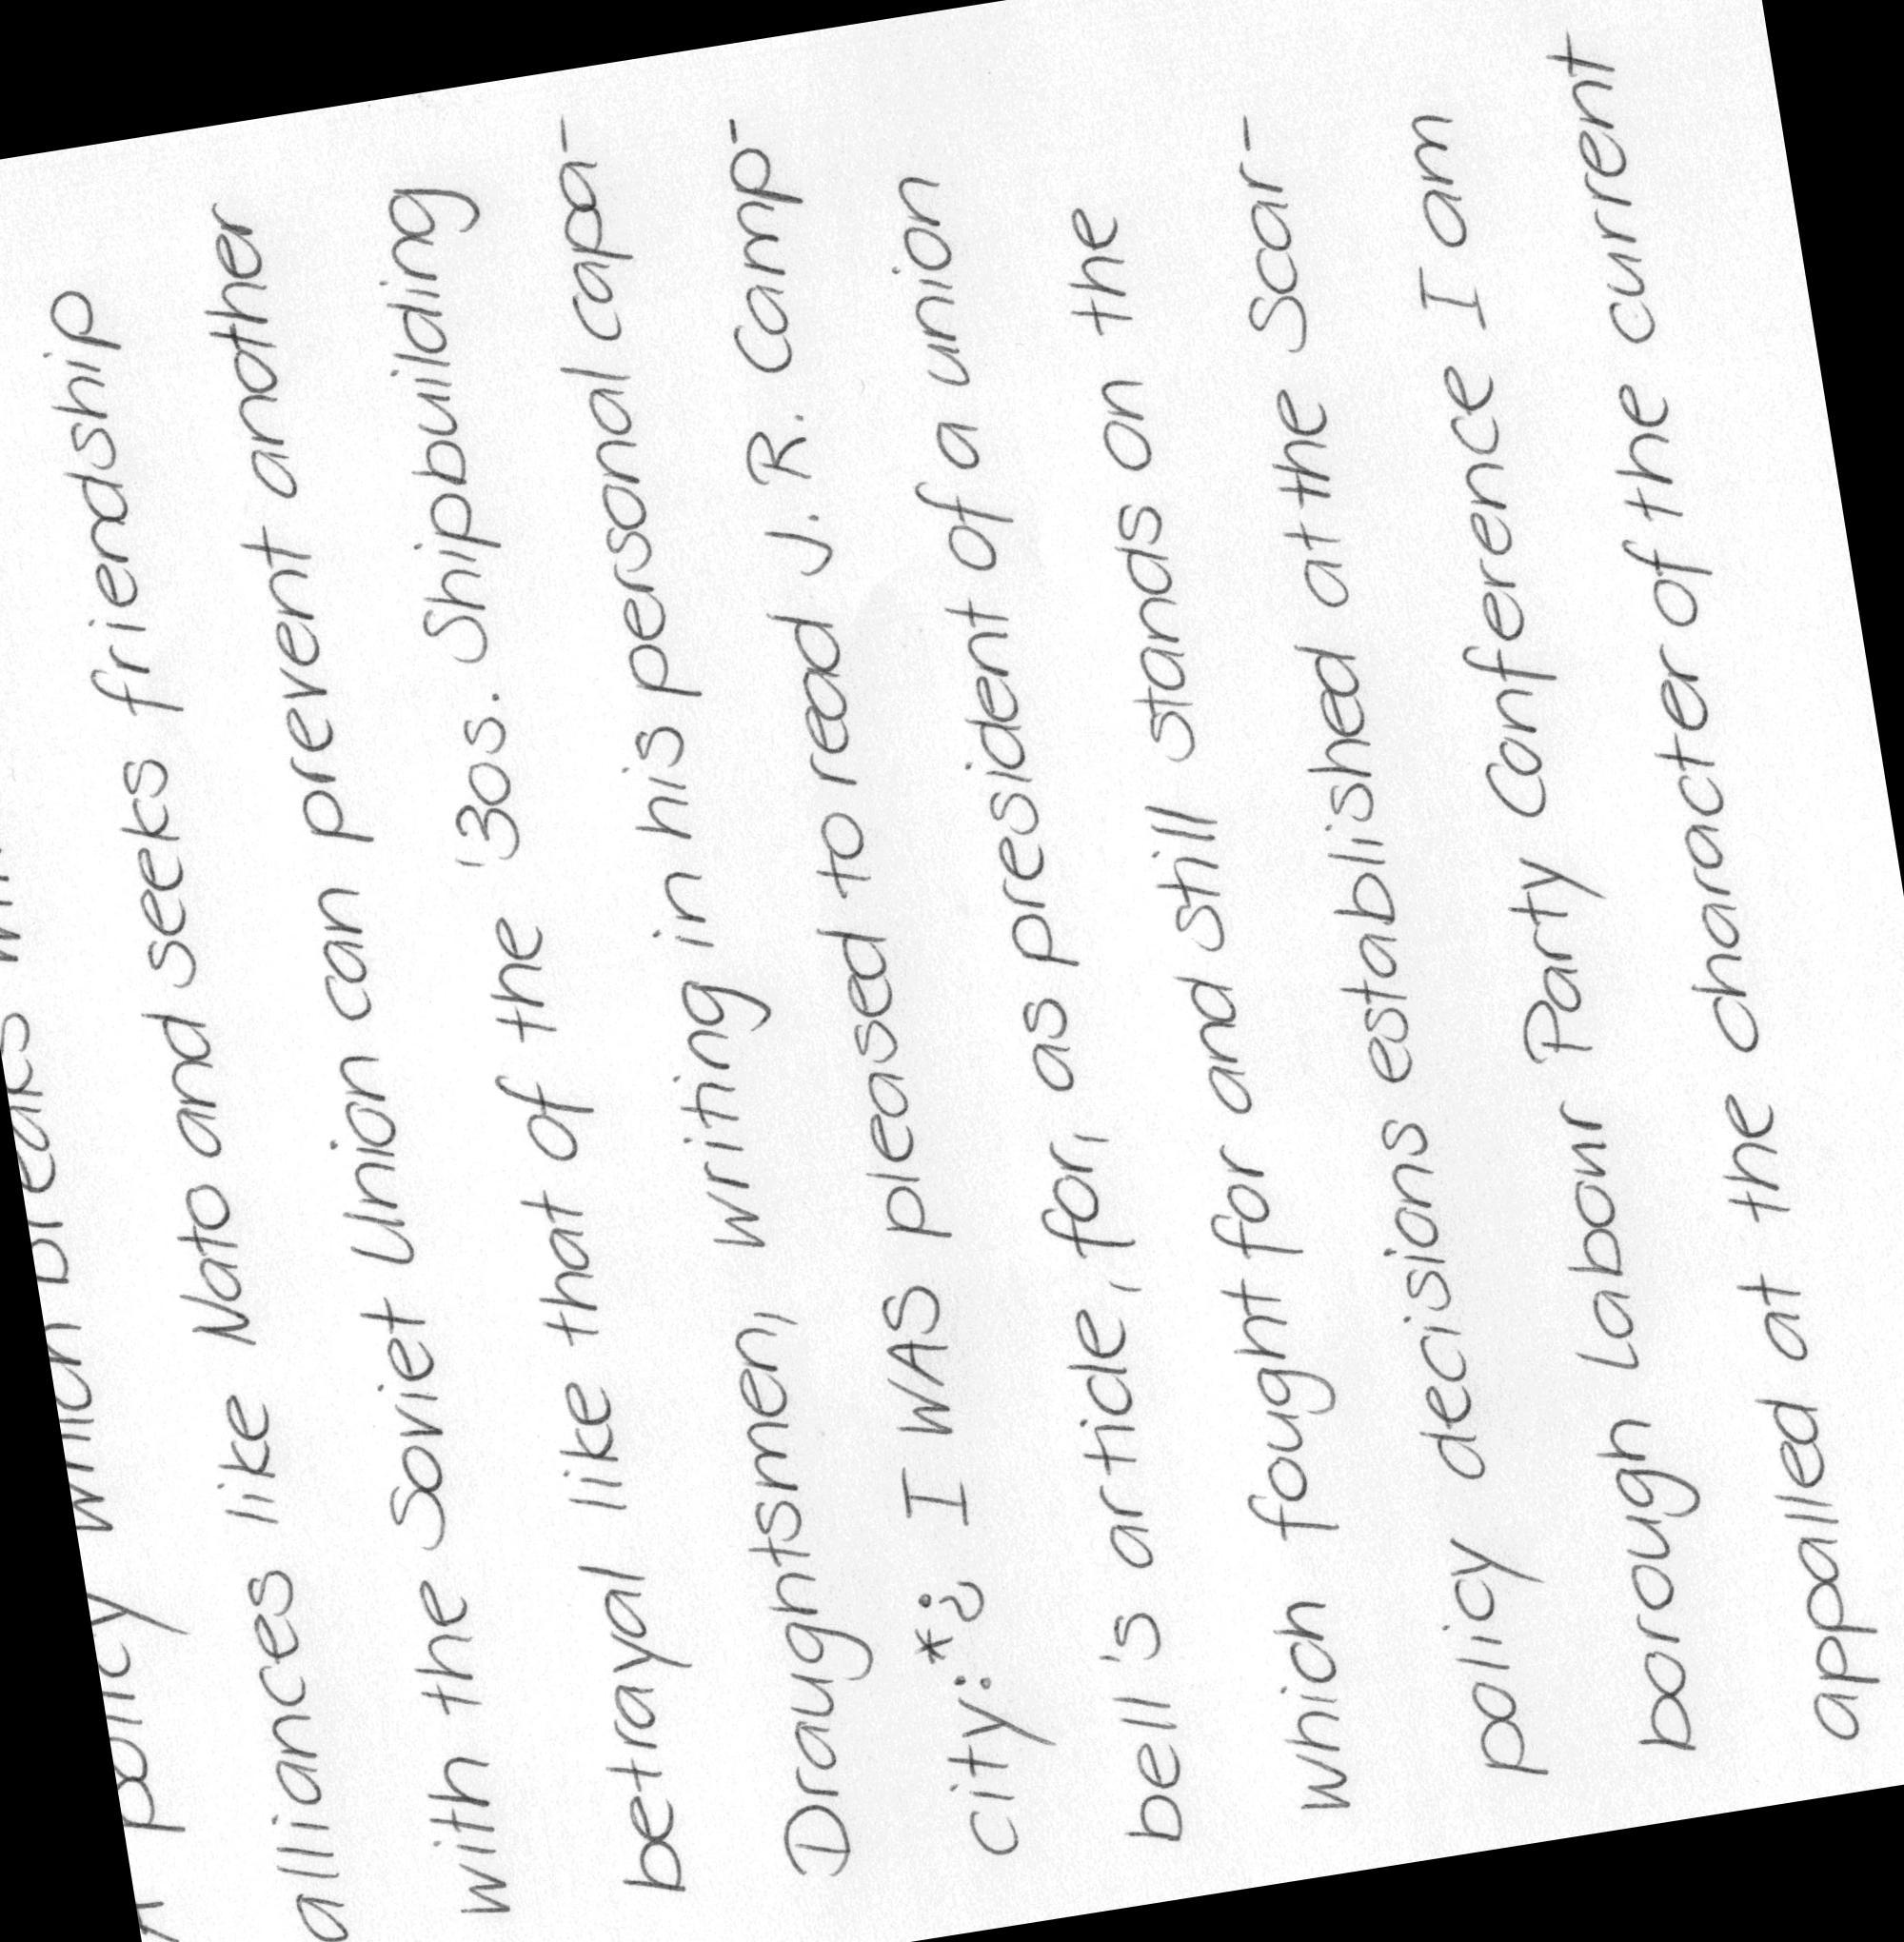 A policy which breaks
alliances like Nato and seeks friendship
with the Soviet Union can prevent another
betrayal like that of the '30s. Shipbuilding
Draughtsmen, writing in his personal capa-
city:*¿ I WAS pleased to read J. R. Camp-
bell's article, for, as president of a union
which fought for and still stands on the
policy decisions established at the Scar-
borough Labour Party Conference I am
appalled at the character of the current